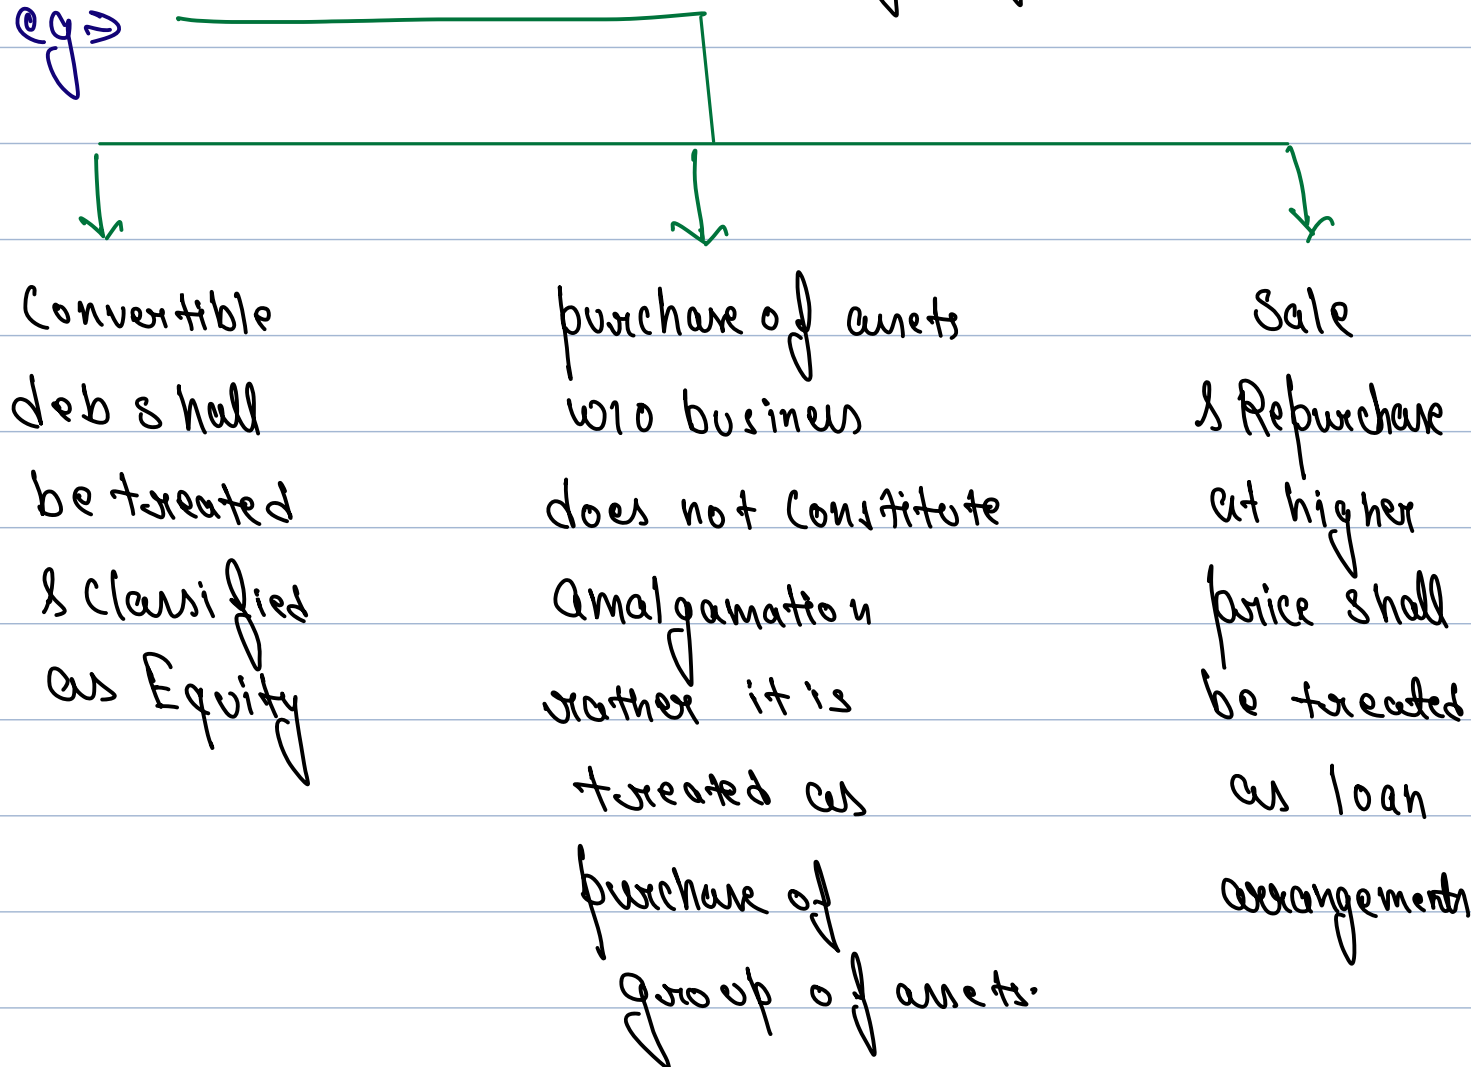 eg ⇒
Convertible
deb shall
be treated
& Classified
as Equity
purchase of assets
w/o business
does not constitute
amalgamation
rather it is
treated as
purchase of
group of assets.
Sale
& Repurchase
at higher
price shall
be treated
as loan
arrangements